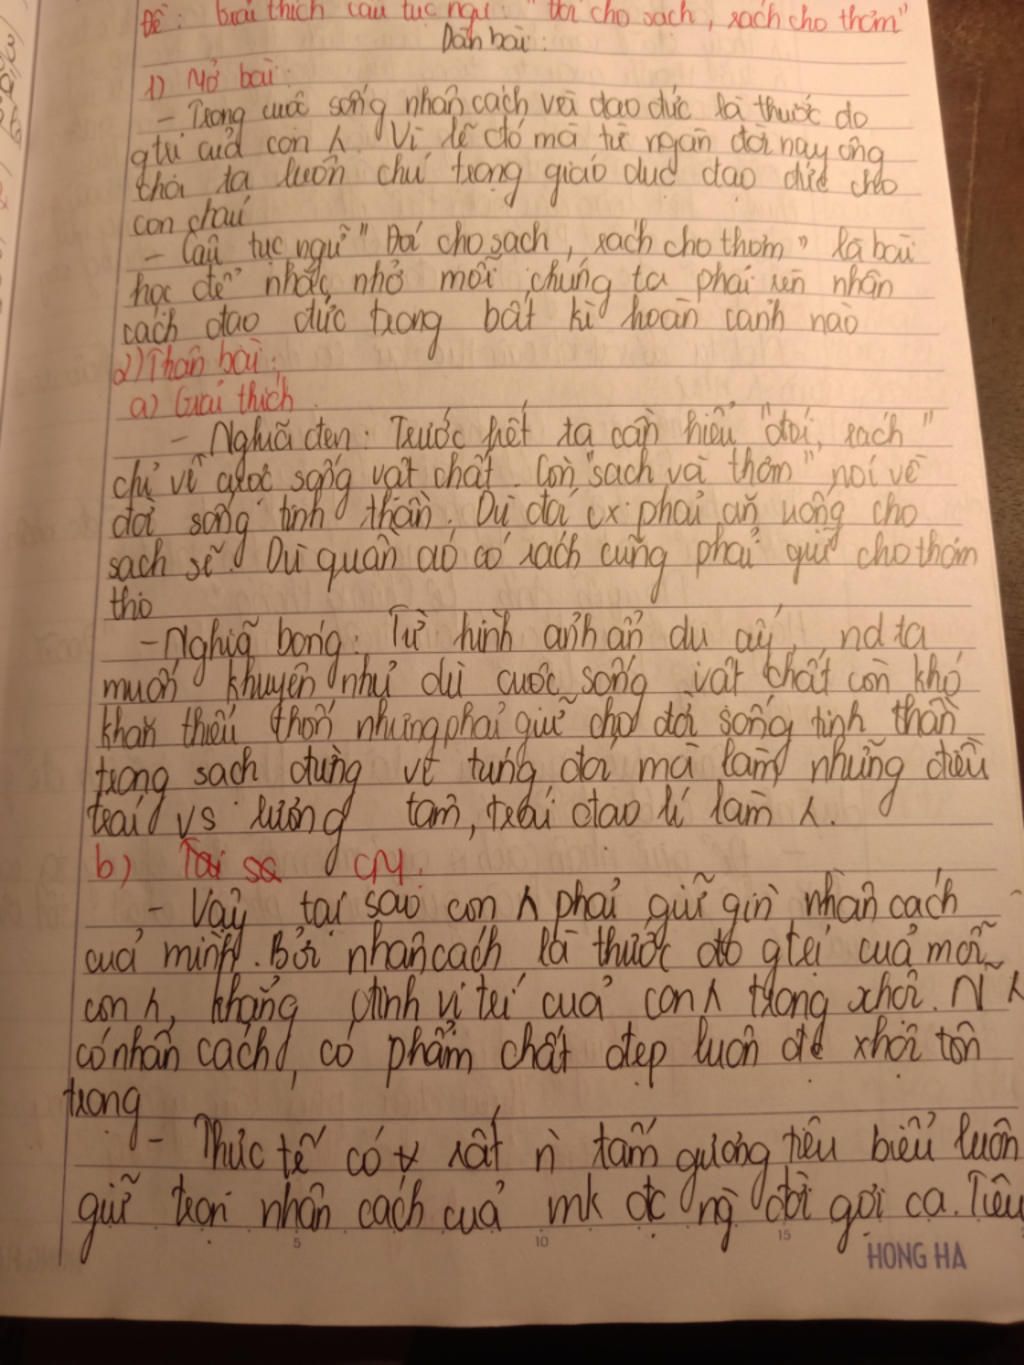 Đề: Giải thích câu tục ngữ: "Đói cho sạch, rách cho thơm"
Dàn bài:
1) Mở bài:
- Trong cuộc sống nhân cách và đạo đức là thước đo
gtrị của con n. Vì lẽ đó mà từ ngàn đời nay ông
cha ta luôn chú trọng giáo dục đạo đức cho
con cháu
- Câu tục ngữ "Đói cho sạch, rách cho thơm" là bài
học để nhắc nhở mỗi chúng ta phải rèn nhân
cách đạo đức trong bất kì hoàn cảnh nào
2) Thân bài:
a) Giải thích
- Nghĩa đen: Trước hết ta cần hiểu "đói, rách"
chỉ về cuộc sống vật chất. Còn "sạch và thơm" nói về
đời sống tinh thần. Dù đói cx phải ăn uống cho
sạch sẽ. Dù quần áo có rách cũng phải giữ cho thơm
tho
- Nghĩa bóng: Từ hình ảnh ẩn dụ ấy, nd ta
muốn khuyên nhủ dù cuộc sống vật chất còn khó
khăn thiếu thốn nhưng phải giữ cho đời sống tinh thần
trong sạch đừng vì túng đói mà làm những điều
trái vs lương tâm, trái đạo lí làm n.
b) CM.
- Vậy tại sao con n phải giữ gìn nhân cách
của mình. Bởi nhân cách là thước đo gtrị của mỗi
con n, khẳng định vị trí của con n trong xhội. N n
có nhân cách, có phẩm chất đẹp luôn đc xhội tôn
trọng
- Thực tế có rất n tấm gương tiêu biểu luôn
giữ trọn nhân cách của mk đc ng đời gợi ca. Tiêu
5 10 15
HONG HA